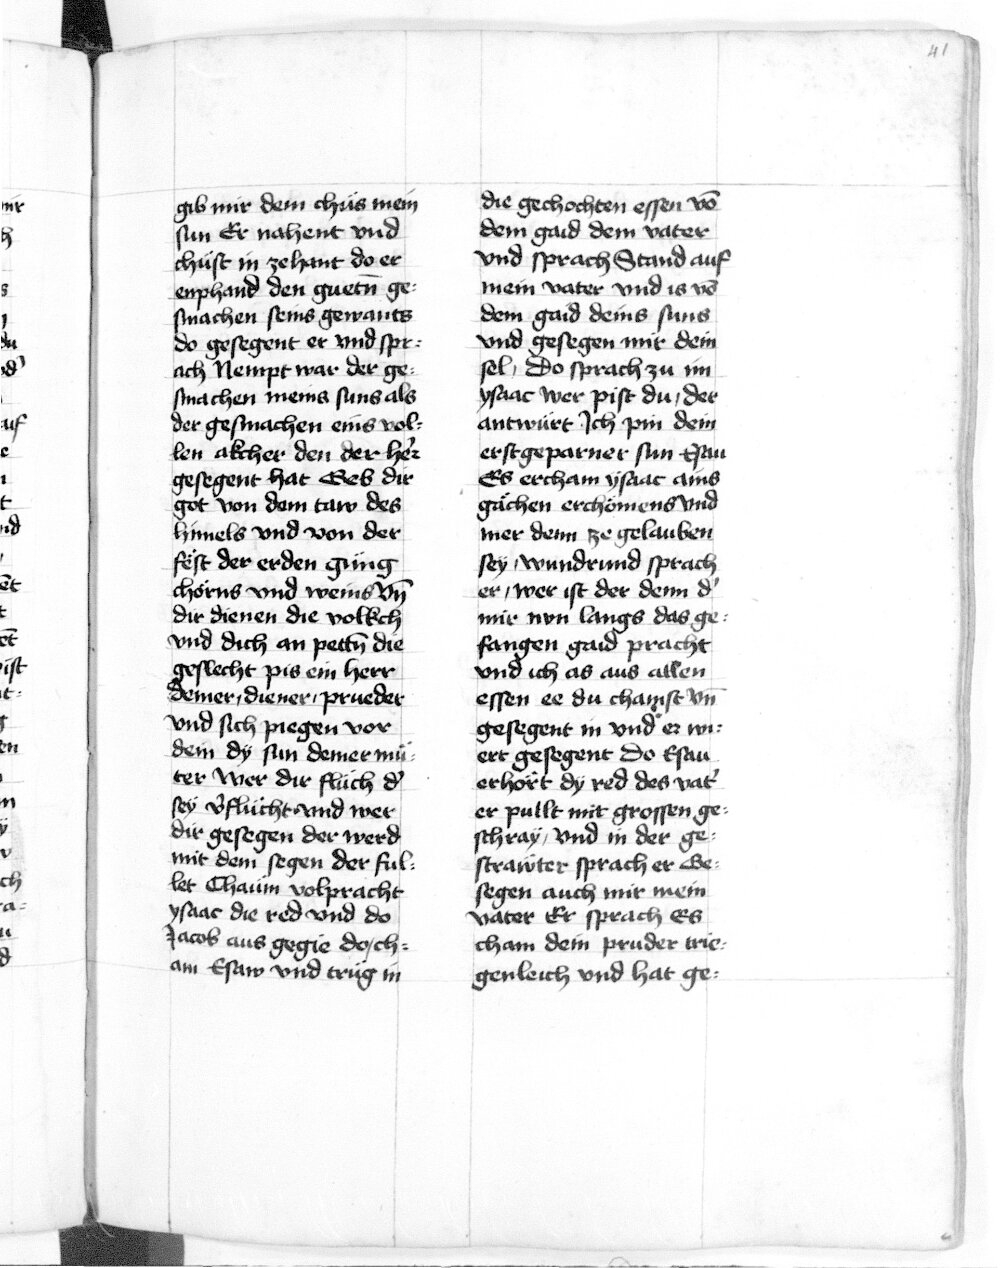 41
gib mir dein chüs mein
sun Er nahent vnd
chüst in zehant do er
enphand den guetn̄ ge=
smachen seins gewants
do gesegent er vnd spr=
ach Nempt war der ge=
smachen meins suns als
der gesmachen eins vol=
len akcher den der her
gesegent hat Geb dir
got von dem taw des
himels vnd von der
fëst der erden güng
chörns vnd weins Vn̄
dir dienen die volkch
vnd dich an pettn̄ die
geslecht pis ein herr
deiner, diener, prueder
vnd sich piegen vor
dein dy sun deiner mü=
ter Wer dir flüch d'
sey v̄flücht vnd wer
dir gesegen der werd
mit dem segen der ful=
let Chaüm volpracht
ysaac die red vnd do
Jacob aus gegie do, ch=
am Esaw vnd trüg in
die gechochten essen vō
dem gaid dem vater
vnd sprach Stand auf
mein vater vnd is vō
dem gaid deins suns
vnd gesegen mir dein
sel, Do sprach zu im
ysaac wer pist du, der
antwürt Ich pin dein
erstgeparner sun Esau
Es ercham ysaac ains
gächen erchömens Vnd
mer denn ze gelauben
sey, wundrund sprach
er, wer ist der denn d'
mir nvn langs das ge=
fangen gaid pracht
vnd ich as aus allen
essen ee du chamst vn̄
gesegent in vnd er wi=
ert gesegent Do Esau
erhört dy red des vat'
er pullt mit grossen ge=
schraÿ, Vnd in der ge=
strawter sprach er Ge=
segen auch mir mein
vater Er sprach Es
cham dein pruder trie=
genleich vnd hat ge=